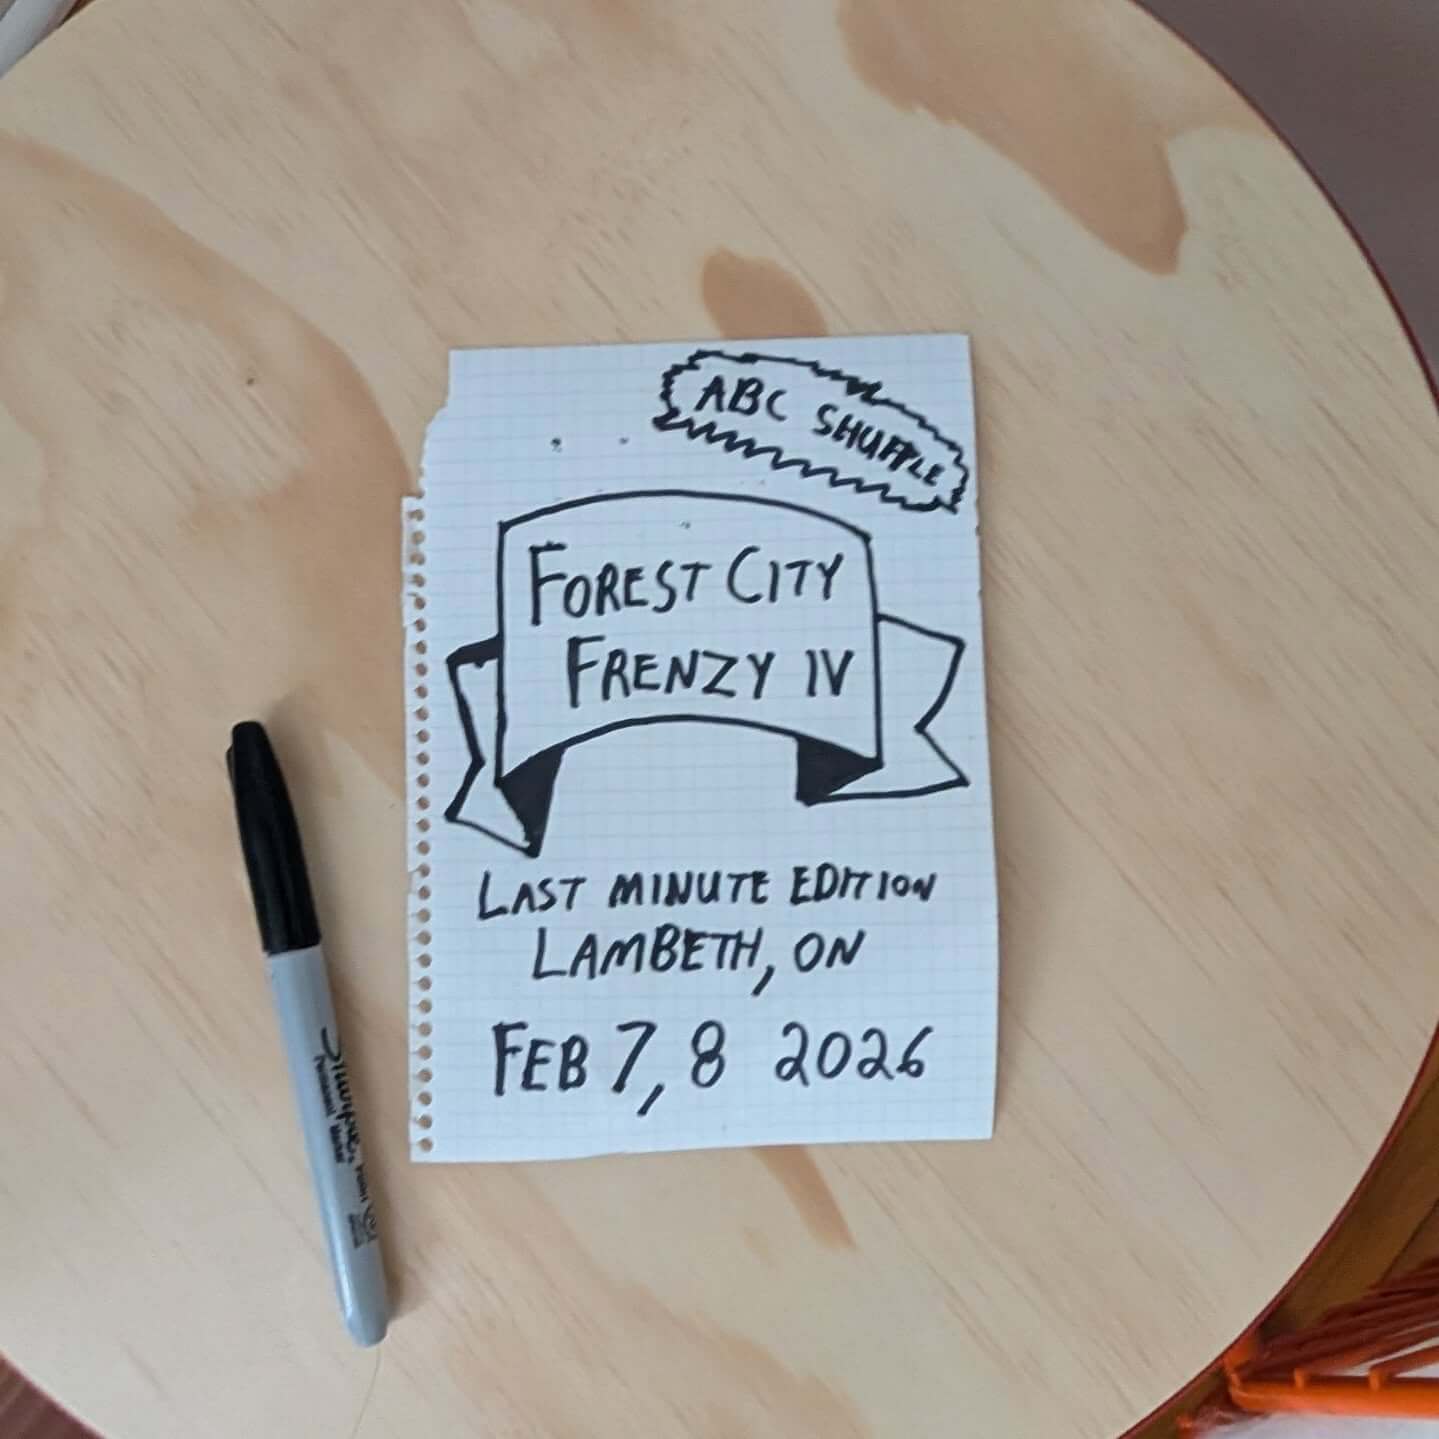 ABC SHUFFLE
FOREST CITY
FRENZY IV
LAST MINUTE EDITION
LAMBETH, ON
FEB 7, 8 2026
Sharpie
PERMANENT MARKER